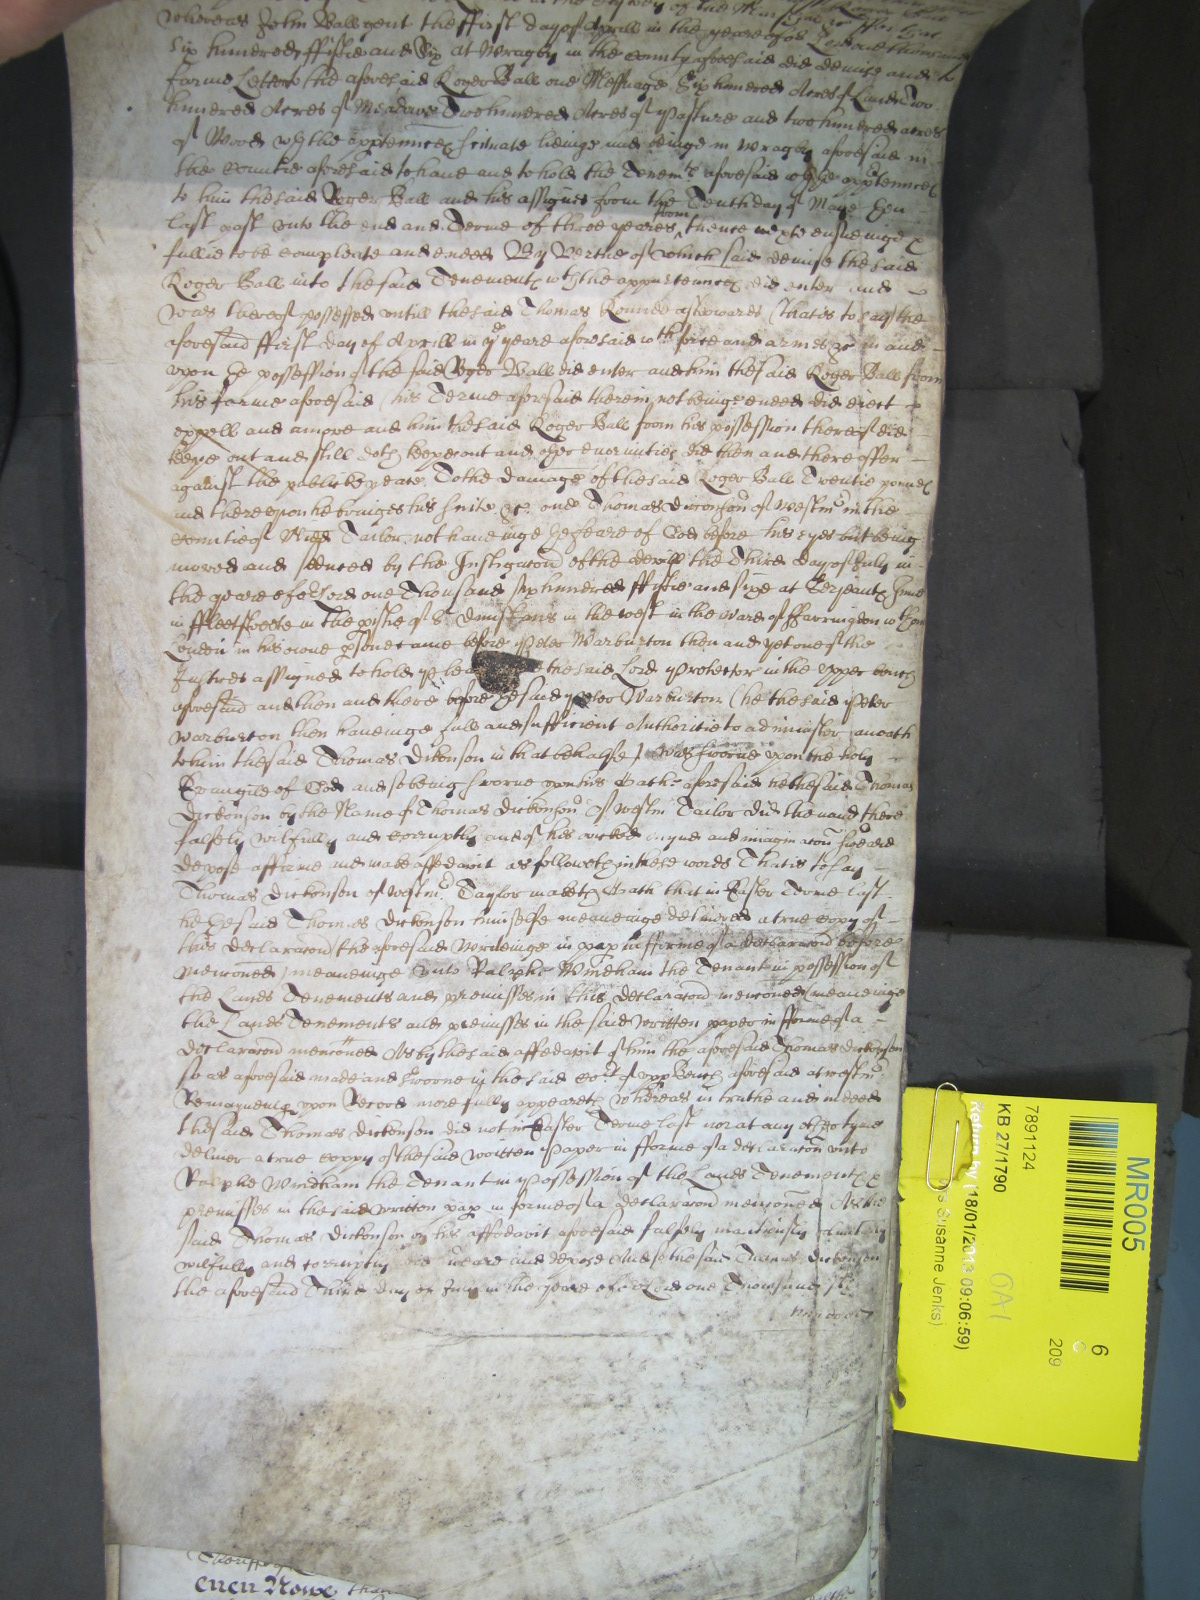 whereas John Ball gent the ffirst day of Aprill in the yeare of o.r Lord one thousand
Six hundred ffiftie and Six at Wragby in the county aforesaid did demise and to
farme Lett to the aforesaid Roger Ball one Messuage Six hundred Acres of Land Two
hundred Acres of Meadowe Two hundred Acres of Pasture and two hundred acres
of Wood wth the apptennces scituate lieinge and beinge in Wragby aforesaid in
the Countie aforesaid to have and to hold the Tenemts aforesaid wth the apptennces
to him the said Roger Ball and his assignes from the Tenth day of Maye then
last past unto the end and Terme of three yeares from thence next ensueinge &
fullie to be compleate and ended By Vertue of which said demise the said
Roger Ball into the said Tenements wth the appurtennces did enter and
was thereof possessed untill the said Thomas Rounds afterwards (that is to say) the
aforesaid ffirst day of Aprill in ye yeare aforesaid wth force and armes &c in and
upon the possession of the said Roger Ball did enter and him the said Roger Ball from
his farme aforesaid (his Terme aforesaid therein not beinge ended) did eject
expell and amove and him the said Roger Ball from his possession thereof did
keepe out and still doth keepe out and other enormities did then and there offer
against the publike peace To the damage of the said Roger Ball Twentie pounds
and thereupon he bringes his suite &c one Thomas Dickonson of Westmr in the
Countie of Midd Tailor not haveinge the feare of God before his eyes but being
moved and seduced by the Instigacon of the devill the Third day of July in
the yeare of or Lord one Thousand six hundred ffiftie and sixe at Serjeants Inne
in ffleetstreete in the pishe of St Dunstans in the west in the ward of ffarringdon wthout
London in his owne pson came before Peter Warburton then and yet one of the
Justices assigned to hold plea the said Lord Protector in the upper bench
aforesaid and then and there before the said Peter Warburton (he the said Peter
Warburton then haveinge full and sufficient Authoritie to administer an oath
to him the said Thomas Dickonson in that behalfe) was sworne upon the holy
Evangile of God and so being sworne upon his Oath aforesaid he the said Thomas
Dickonson by the Name of Thomas Dickonson of Westmr Tailor did then and there
falsely wilfully and corruptly and of his wicked mynd and imaginacon sweare
depose affirme and make affedavit as followeth in these words That is to say
Thomas Dickonson of Westmr Taylor maketh Oath that in Easter Terme last
he (the said Thomas Dickonson himselfe meaneinge) delivered a true copy of
this declaracon (the aforesaid Wordeinge in pap in fforme of a declaracon before
mencioned) meaneinge unto Ralphe Windham the Tenant in possession of
the Lands Tenements and premisses in this declaracon mencioned (meaneinge
the Lands Tenements and premisses in the said written paper in fforme of a
declaracon mencioned As by the said affedavit of him the aforesaid Thomas Dickonson
so as aforesaid made and sworne in the said Cort of upp Bench aforesaid at westmr
Remayneing upon Record more fully appeareth whereas in truthe and indeed
the said Thomas Dickonson did not in Easter Terme last nor at any other tyme
deliver a true coppy of the said written Paper in fforme of a declaracon unto
Ralphe Windham the Tenant in possession of the Lands Tenements &
premisses in the said written pap in forme of a declaracon mencioned As the
said Thomas Dickonson by his affedavit aforesaid falsely
wilfully and corruptly did sweare and depose And so the said Thomas Dickonson
the aforesaid Third day of July in the yeare of or Lord one Thousand six
hundred
even Nowe than
MR005
7891124
KB 27/1790
Return by (18/01/2013 09:06:59)
Susanne Jenks)
6
209